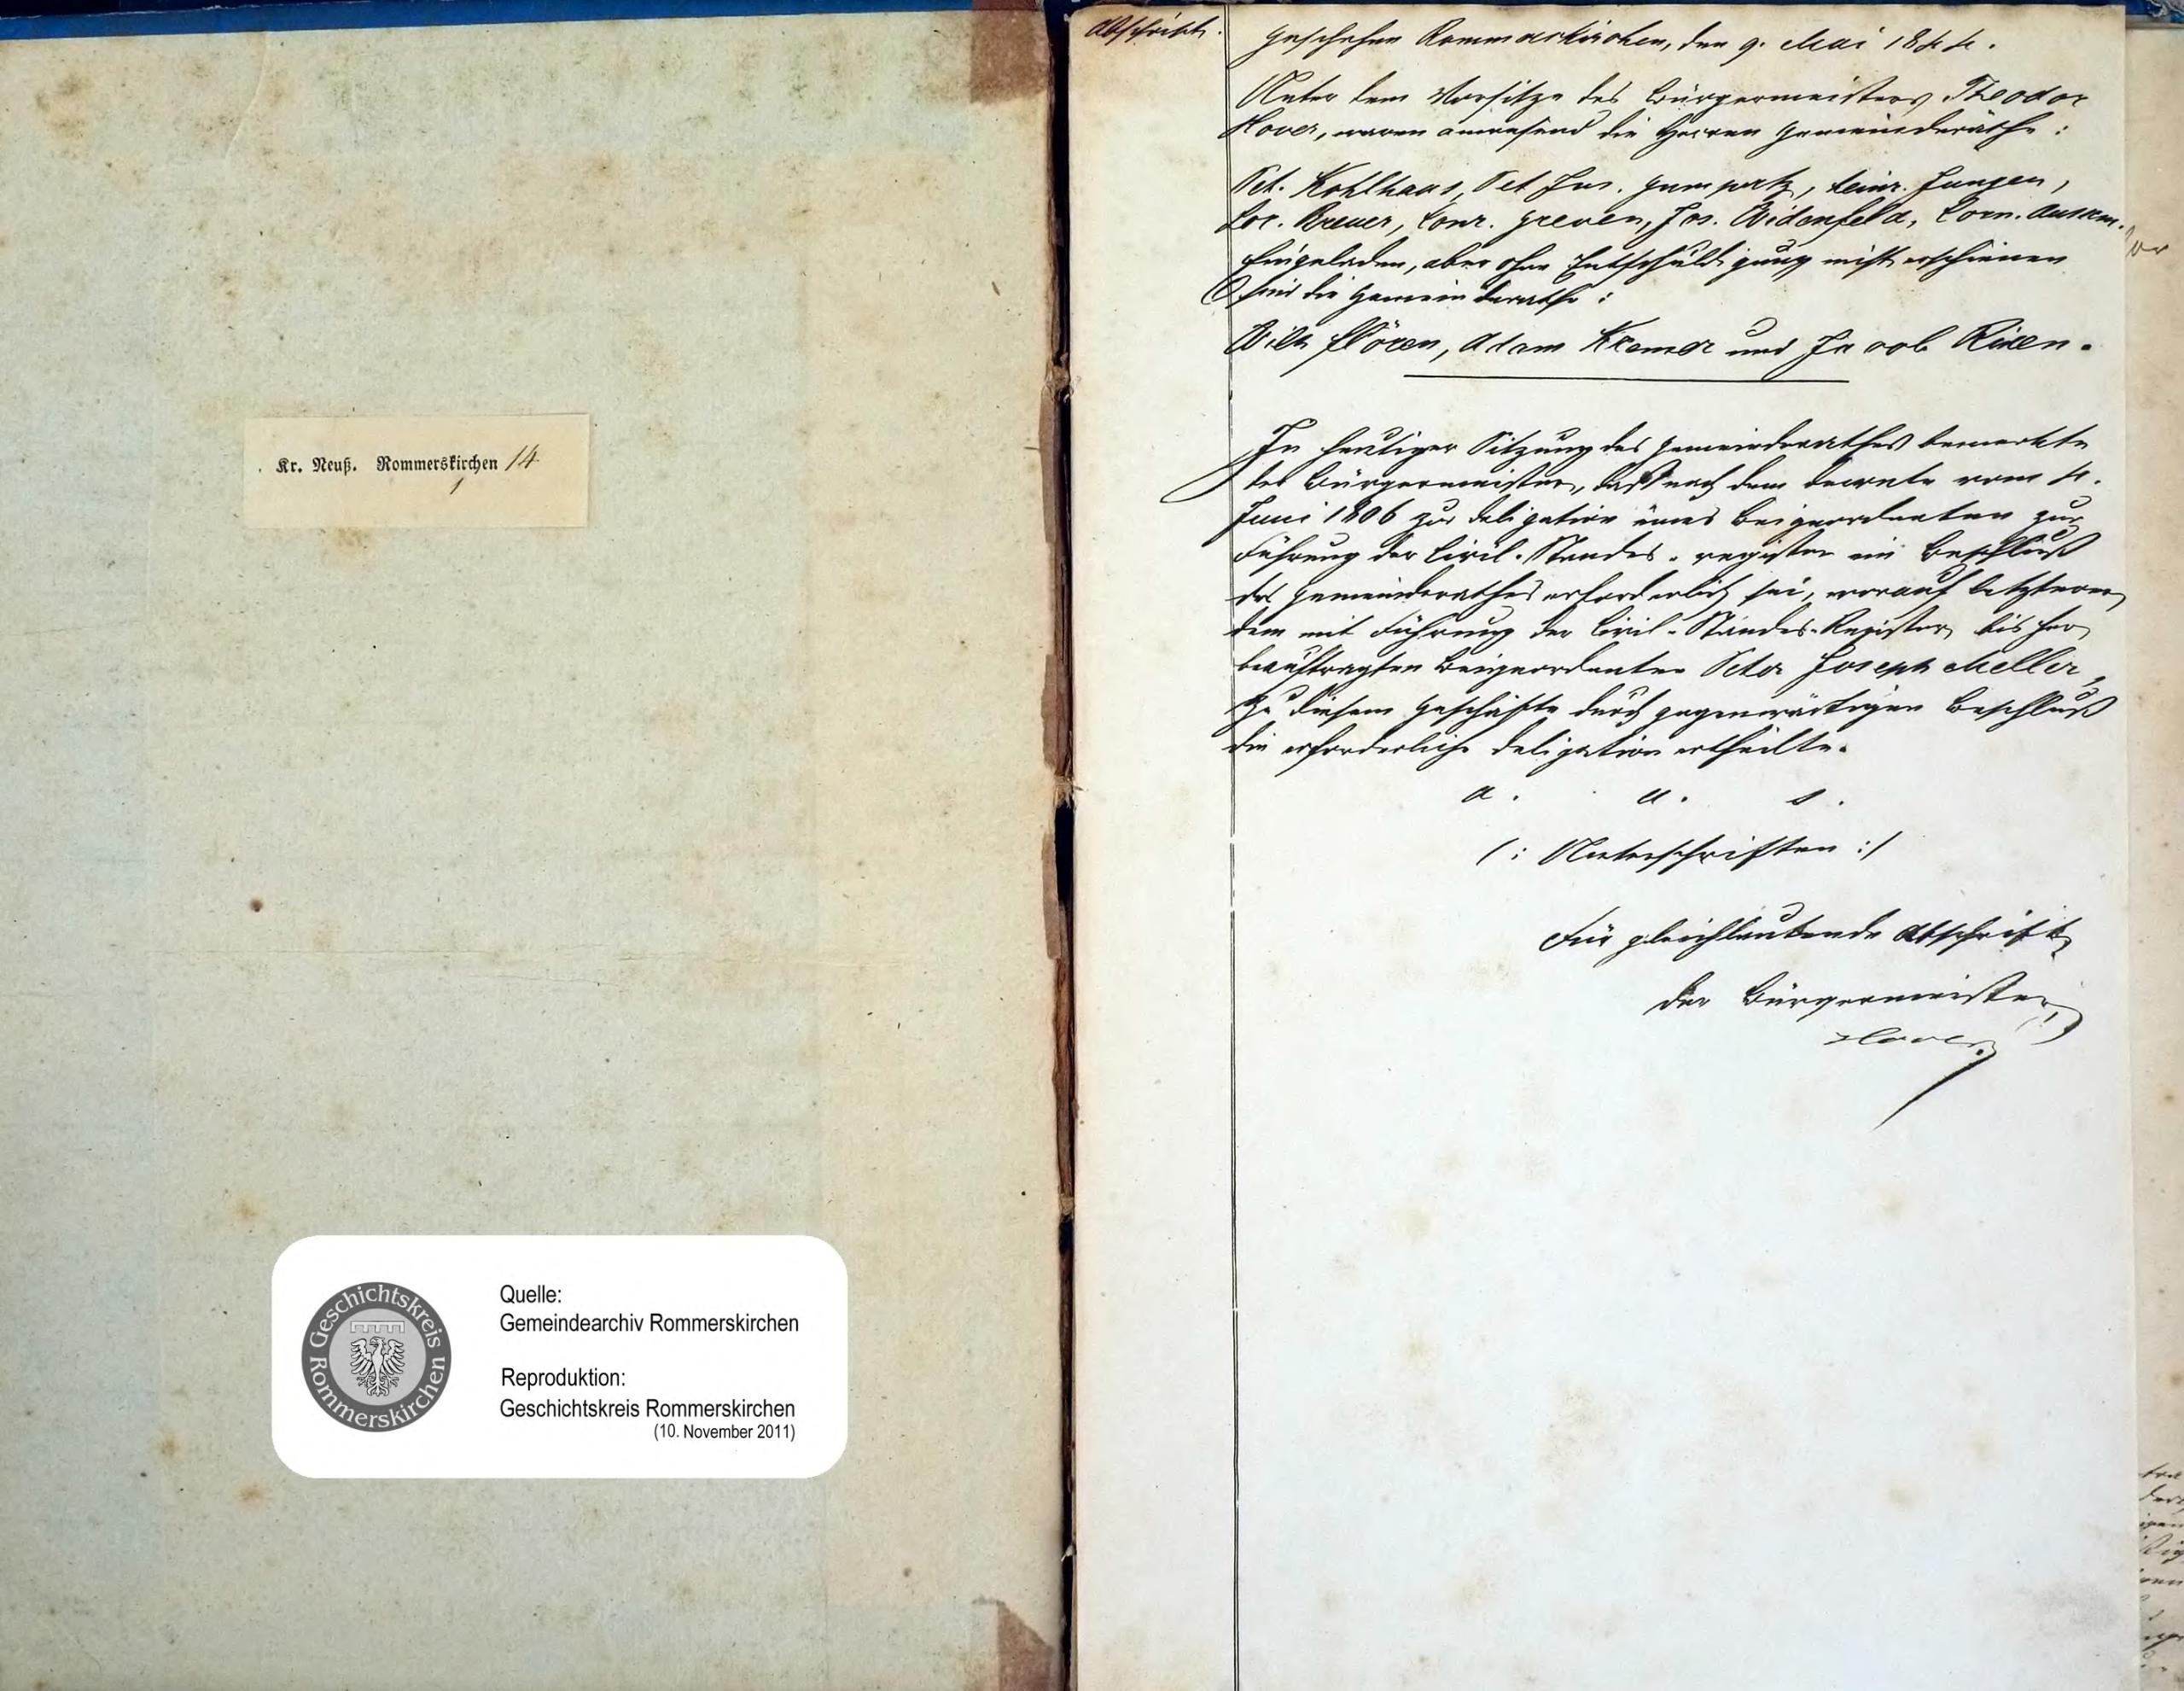 Kr. Neuß. Rommerskirchen 14
1
Geschichtskreis Rommerskirchen
Quelle:
Gemeindearchiv Rommerskirchen
Reproduktion:
Geschichtskreis Rommerskirchen
(10. November 2011)
Abschrift.
Geschehen Rommerskirchen, den 9. Mai 1844.
Unter dem Vorsitze des Bürgermeisters Theodor
Hover, waren anwesend die Herren Gemeinderäthe:
Pet. Kohlhaas, Pet Jos. Gumpertz, Heinr. Jungen,
Breuer, Conr. Greven, Jos. Widenfeld, Corn.
Eingeladen, aber ohne Entschuldigung nicht erschienen
sind die Gemeinderäthe:
Wilh Flören, Adam Kremer und Jacob Rixen.
In heutiger Sitzung des Gemeinderathes bemerkte
der Bürgermeister, daß nach dem Decrete vom 4.
Juni 1806 zur Deligation eines Beigeordneten zur
Führung der Civil-Standes-register ein Beschluß
des Gemeinderathes erforderlich sei, worauf letzterer
dem mit Führung der Civil-Standes-Register bisher
beauftragten Beigeordneten Peter Joseph Meller,
zu diesem Geschäfte durch gegenwärtigen Beschluß
die erforderliche Deligation ertheilte.
a. u. s.
(: Unterschriften :)
Für gleichlautende Abschrift
Der Bürgermeister,
Hover.